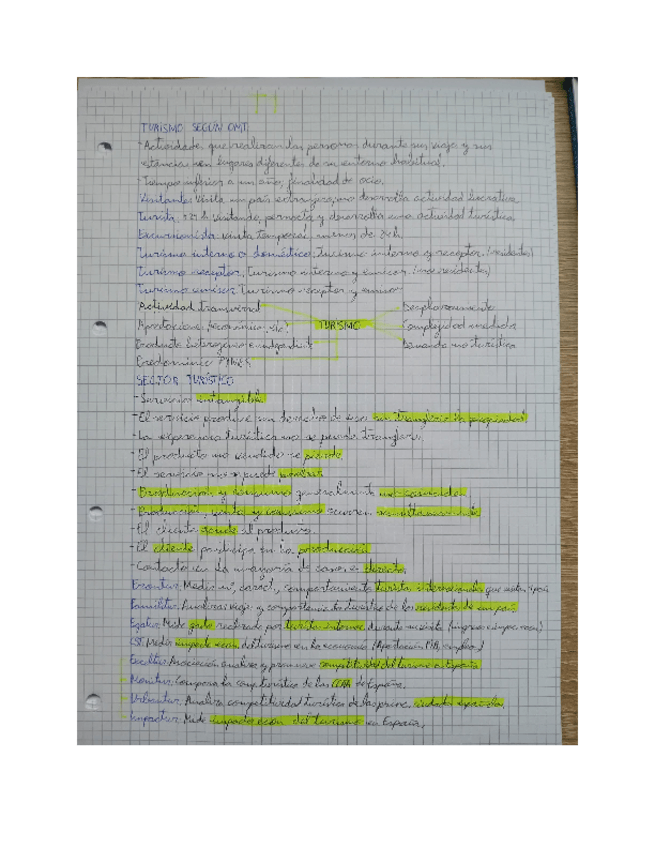 TURISMO SEGÚN OMT
-Actividades que realizan las personas durante sus viajes y sus
estancias en lugares diferentes de su entorno habitual.
-Tiempo inferior a un año, finalidad de ocio.
Visitante: Visita un país extranjero, no desarrolla actividad lucrativa
Turista: +24h visitando, pernocta y desarrolla una actividad turística
Excursionista: visita temporal, menos de 24h
Turismo interno o doméstico: Turismo interno y receptor. (residentes)
Turismo receptor: Turismo interno y emisor. (no residentes)
Turismo emisor: Turismo receptor y emisor
Actividad transversal
Aportaciones (económicas, etc)
Producto heterogéneo e
Predominio PYMES
TURISMO
Desplazamiento
Complejidad medida
Demanda no turística
SECTOR TURÍSTICO
-Servicios intangible
-El servicio produce un derecho de uso, no transfiere la propiedad
-La experiencia turística no se puede transferir.
-El producto no vendido se pierde
-El servicio no se puede
-Producción y consumo generalmente
-Producción, venta y consumo ocurren simultáneamente
-El cliente acude al producto
-El cliente participa en la producción
-Contacto en la mayoría de casos es directo
Frontur: Medir nº, caract., comportamiento turistas internacionales que
Familitur: Analiza viajes y comportamiento turístico de los residentes de un país
Egatur: Mide gasto realizado por turistas
CST: Medir impacto econ. del turismo en la economía (Aportación PIB, empleo)
Exceltur: Asociación analiza y promueve competitividad del turismo en España
Monitur: Compara la comp. turística de las CCAA de España.
Urbantur: Analiza competitividad turística de las princ. ciudades españolas
Impactur: Mide impacto econ. del turismo en España.